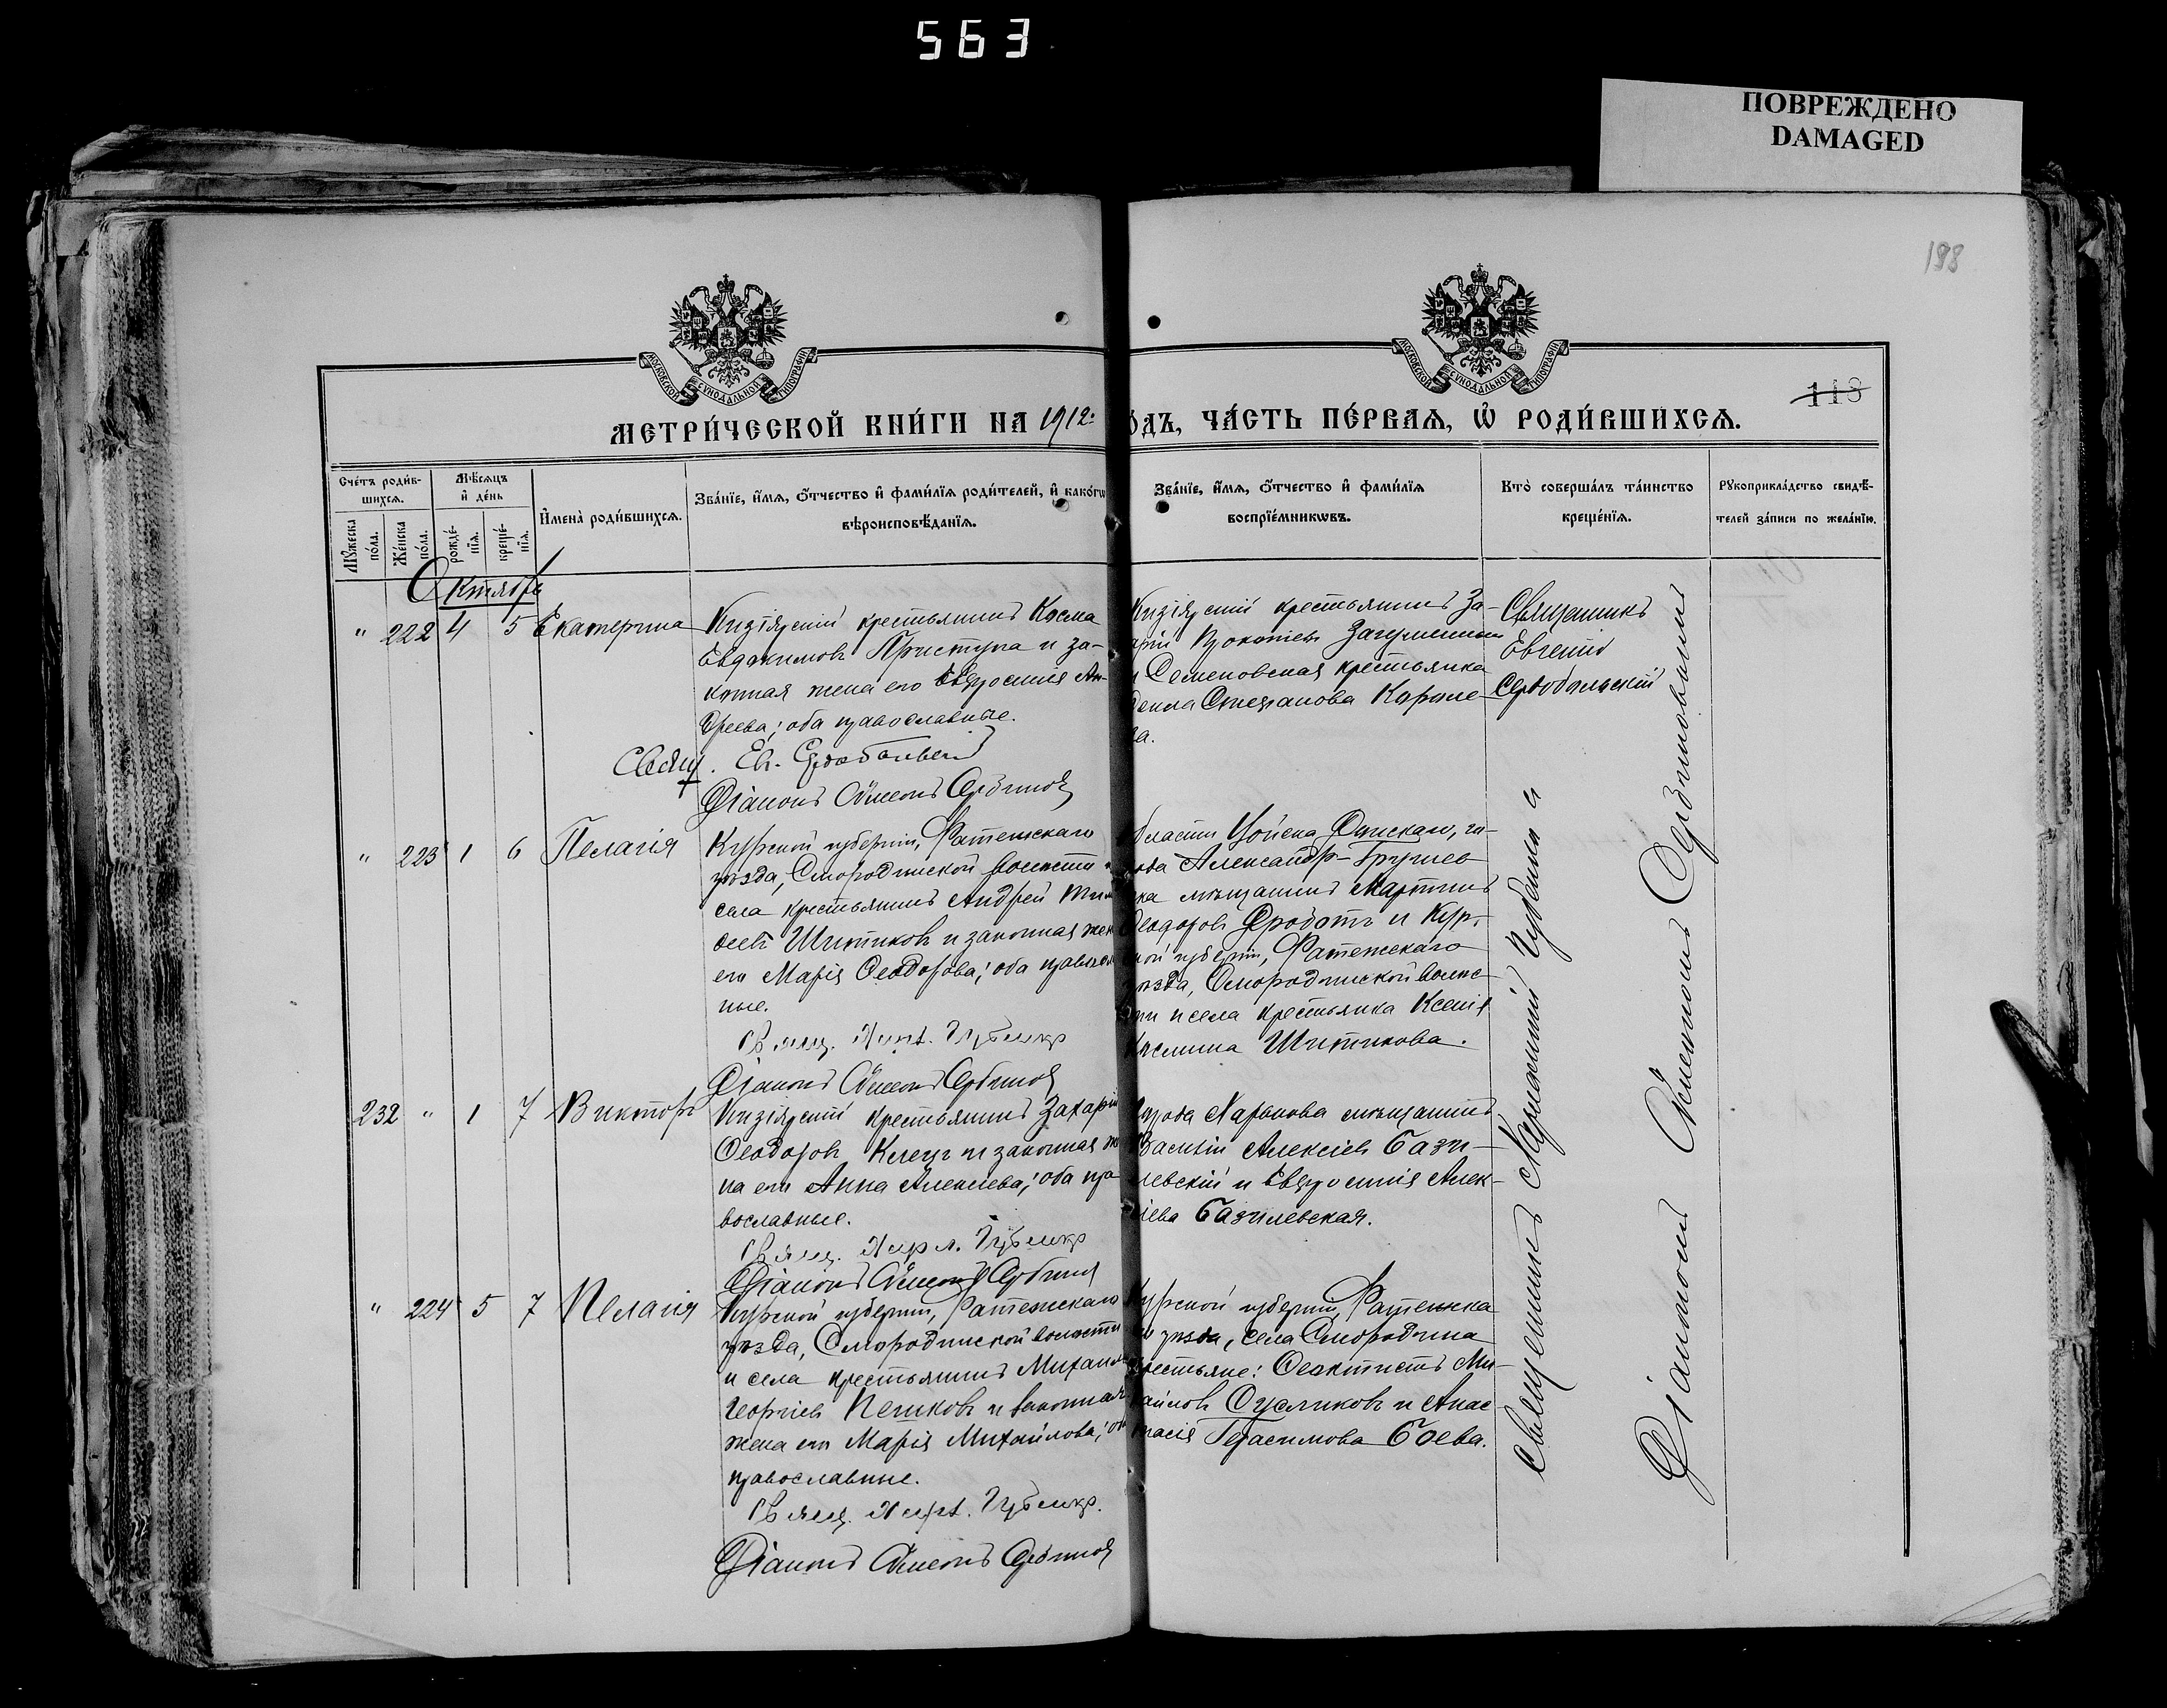 563
ПОВРЕЖДЕНО
DAMAGED
188
118
МОСКОВСКОЙ СѴНОДАЛЬНОЙ ТИПОГРАФІИ
МОСКОВСКОЙ СѴНОДАЛЬНОЙ ТИПОГРАФІИ
МЕТРИ́ЧЕСКОЙ КНИ́ГИ НА 1912:
ОДЪ, ЧА́СТЬ ПЕ́РВАѦ, Ѡ҆ РОДИ́ВШИХСѦ.
Сче́тъ роди́вшихсѧ.
Мꙋ́жеска по́ла.
Же́нска по́ла.
Мѣ́сѧцъ и҆ де́нь
рожде́нїѧ.
креще́нїѧ.
И҆мена̀ роди́вшихсѧ.
Зва́нїе, и҆́мѧ, ѻ҆́тчество и҆ фами́лїѧ роди́телей, и҆ како́гѡ
вѣроисповѣ́данїѧ.
Зва́нїе, и҆́мѧ, ѻ҆́тчество и҆ фами́лїѧ
воспрїе́мникѡвъ.
Кто̀ соверша́лъ та́инство
креще́нїѧ.
Рꙋкоприкла́дство свидѣ́-
телей за́писи по жела́нїю.
Октябрь
" 222 4 5 Екатерина
Кизіярскій крестьянинъ Косма
Евдокимовъ Приступа и за-
конная жена его Евфросинія Ан-
дреева; оба православные.
Свящ. Ев. Сердобольскій
Діаконъ Симеонъ
Кизіярскій крестьянинъ За-
арій Прокопіевъ
и Семеновская крестьянка
Стефанова
ва.
Священникъ
Евгеній
Сердобольскій
" 223 1 6 Пелагія
Курской губерніи, Фатежскаго
уѣзда, Смородинской волости и
села крестьянинъ Андрей
Шитиковъ и законная жен
его Марія Ѳеодорова; оба правосла
ные.
Свящ.
Діаконъ Симеонъ
бласти Войска Донскаго, го-
рода Александр-Грушев
ка мѣщанинъ Мартинъ
Ѳеодоровъ и Кур-
кой губерніи, Фатежскаго
уѣзда, Смородинской волос-
ти и села крестьянка Ксенія
Шитикова.
232 " 1 7 Викторъ
Кизіярскій крестьянинъ Захарій
Ѳеодоровъ и законная же
на его Анна Алексіева; оба пра
вославные.
Свящ.
Діаконъ Симеонъ
города Харькова мѣщанинъ
Василій Алексіевъ Бази-
левскій и Евфросинія Алек-
сіева Базилевская.
" 224 5 7 Пелагія
Курской губерніи, Фатежскаго
уѣзда, Смородинской волости
и села крестьянинъ Михаилъ
Георгіевъ Пешковъ и законная
жена его Марія Михайлова; оба
православные.
Свящ.
Діаконъ Симеонъ
Курской губерніи, Фатежска
го уѣзда, села Смородина
крестьяне: Ѳеоктистъ Ми-
хайловъ и Анас
тасія Герасимова Боева.
Священникъ
Діаконъ Симеонъ